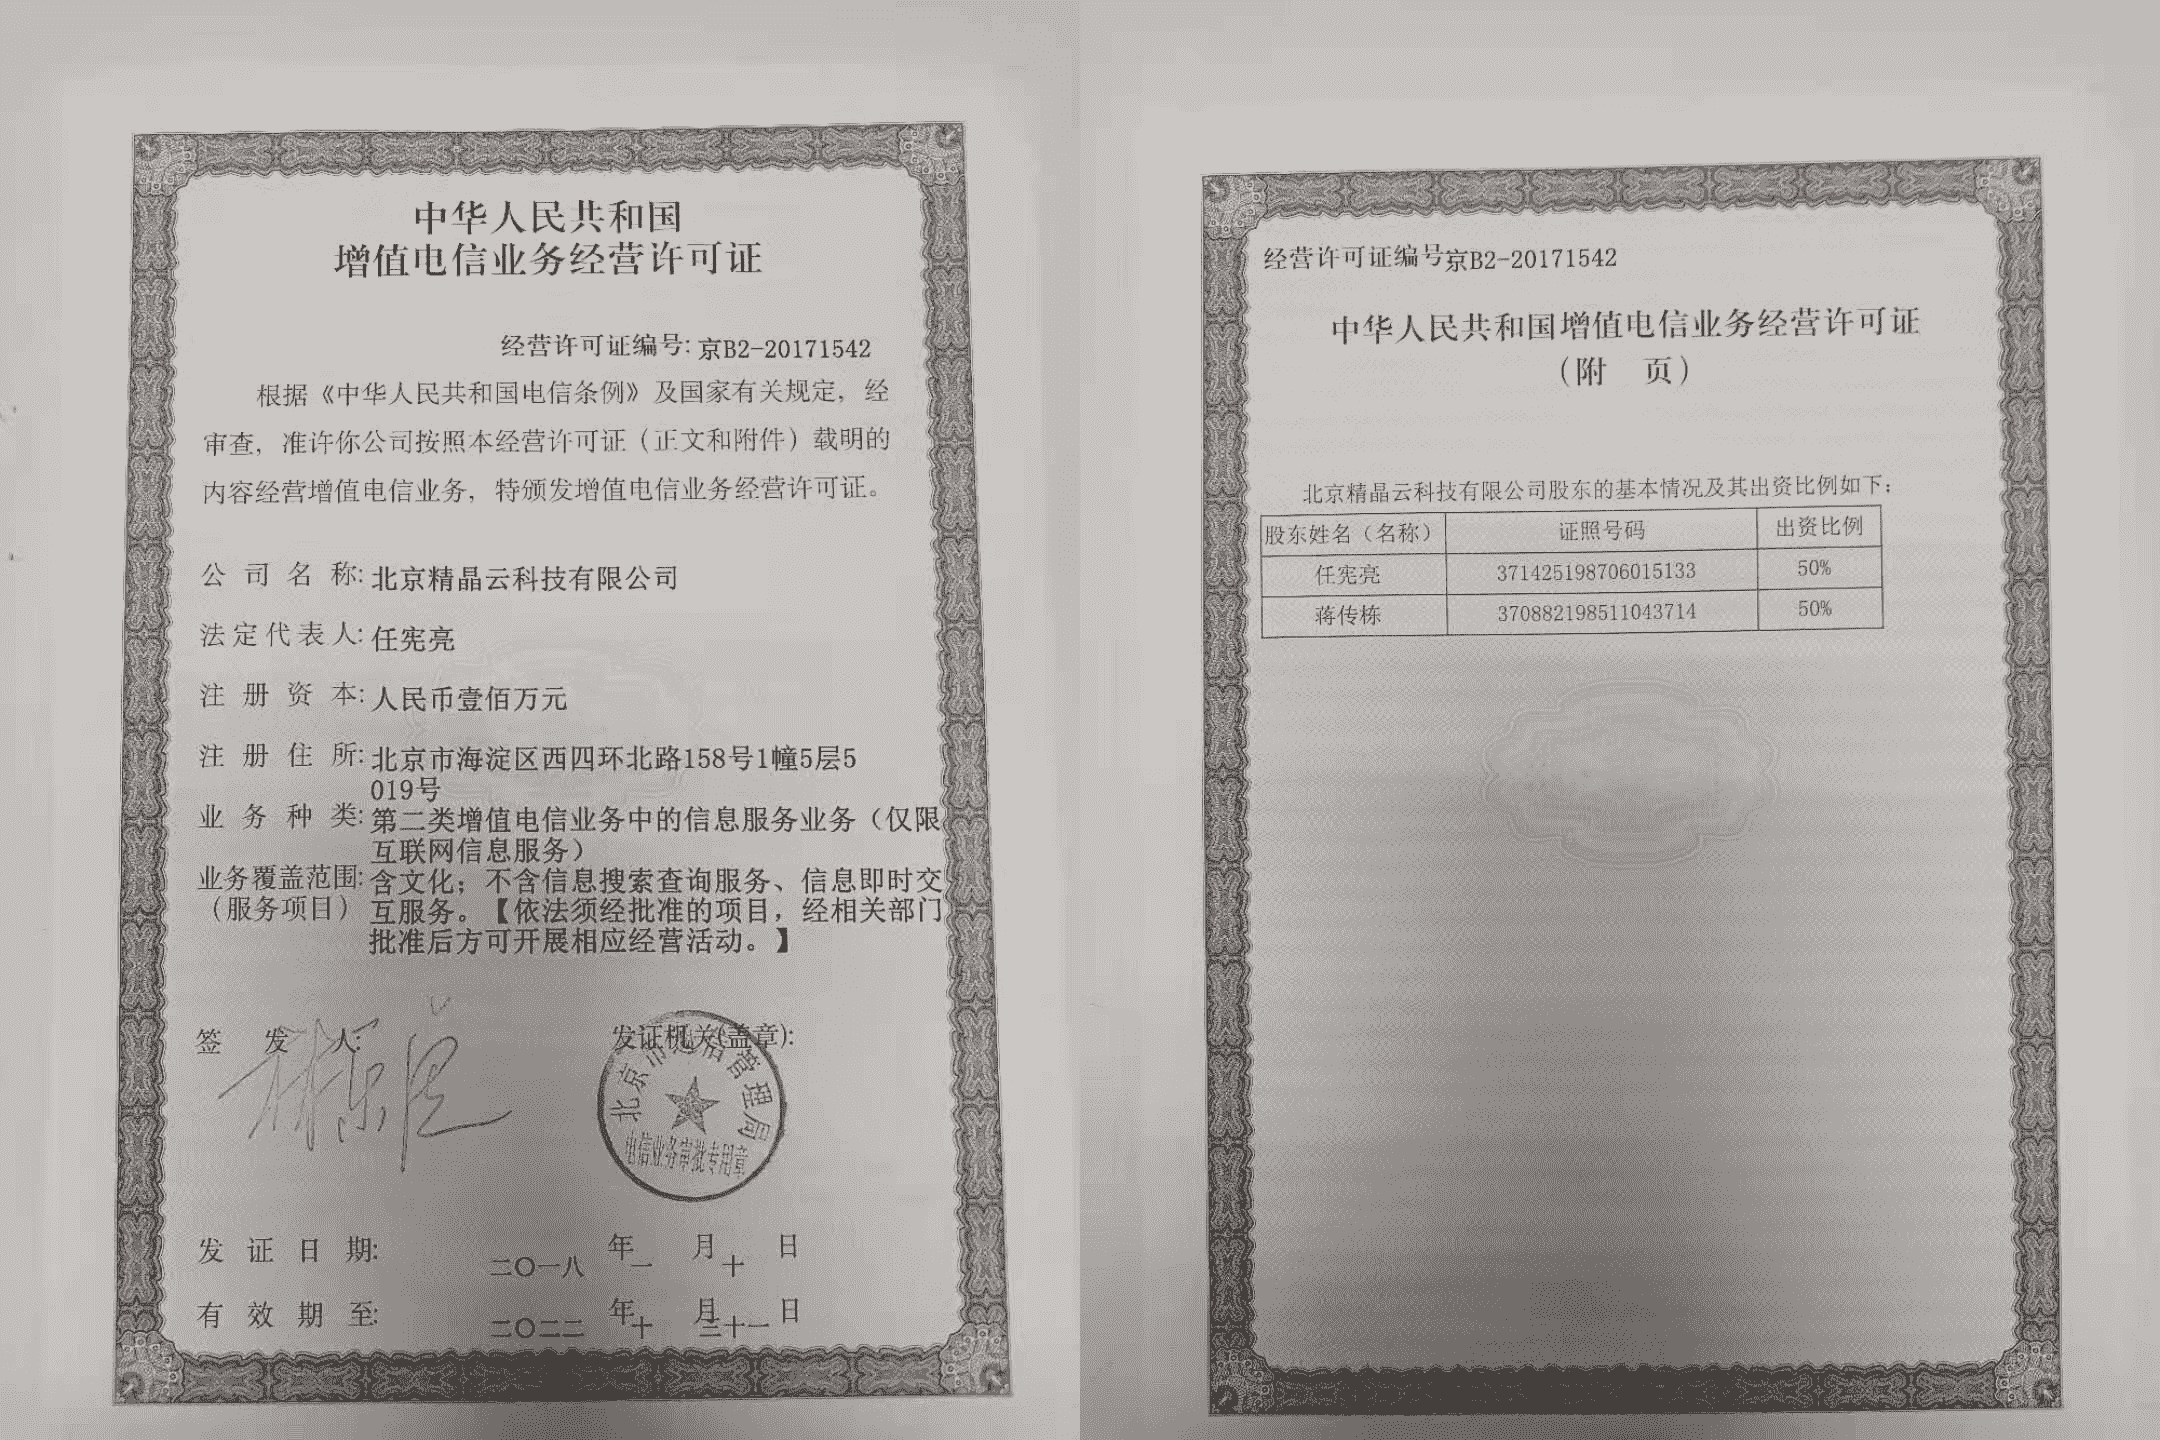 中华人民共和国
增值电信业务经营许可证
经营许可证编号: 京B2-20171542
根据《中华人民共和国电信条例》及国家有关规定，经
审查，准许你公司按照本经营许可证（正文和附件）载明的
内容经营增值电信业务，特颁发增值电信业务经营许可证。
公司名称: 北京精晶云科技有限公司
法定代表人: 任宪亮
注册资本: 人民币壹佰万元
注册住所: 北京市海淀区西四环北路158号1幢5层5
019号
业务种类: 第二类增值电信业务中的信息服务业务（仅限
互联网信息服务）
业务覆盖范围: 含文化；不含信息搜索查询服务、信息即时交
（服务项目） 互服务。【依法须经批准的项目，经相关部门
批准后方可开展相应经营活动。】
签发人:
发证机关(盖章):
北京市通信管理局
电信业务审批专用章
发证日期: 二〇一八年一月十日
有效期至: 二〇二二年十月三十一日
经营许可证编号京B2-20171542
中华人民共和国增值电信业务经营许可证
（附 页）
北京精晶云科技有限公司股东的基本情况及其出资比例如下：
股东姓名（名称） 证照号码 出资比例
任宪亮 371425198706015133 50%
蒋传栋 370882198511043714 50%